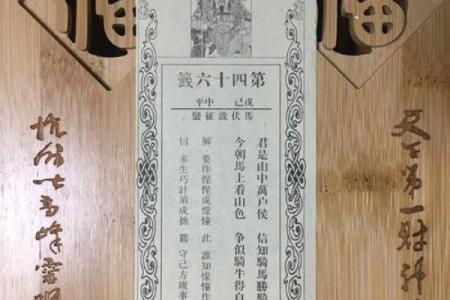 第四十六籤
戊己 中平
馬伏波征蠻
君是山中萬户侯 信知騎馬勝騎
今朝馬上看山色 爭似騎牛得自
解 要作惺惺成懞懂 此 誰知懞懂作
曰 多生巧計須成拙 籤 守己方
天下第一財神